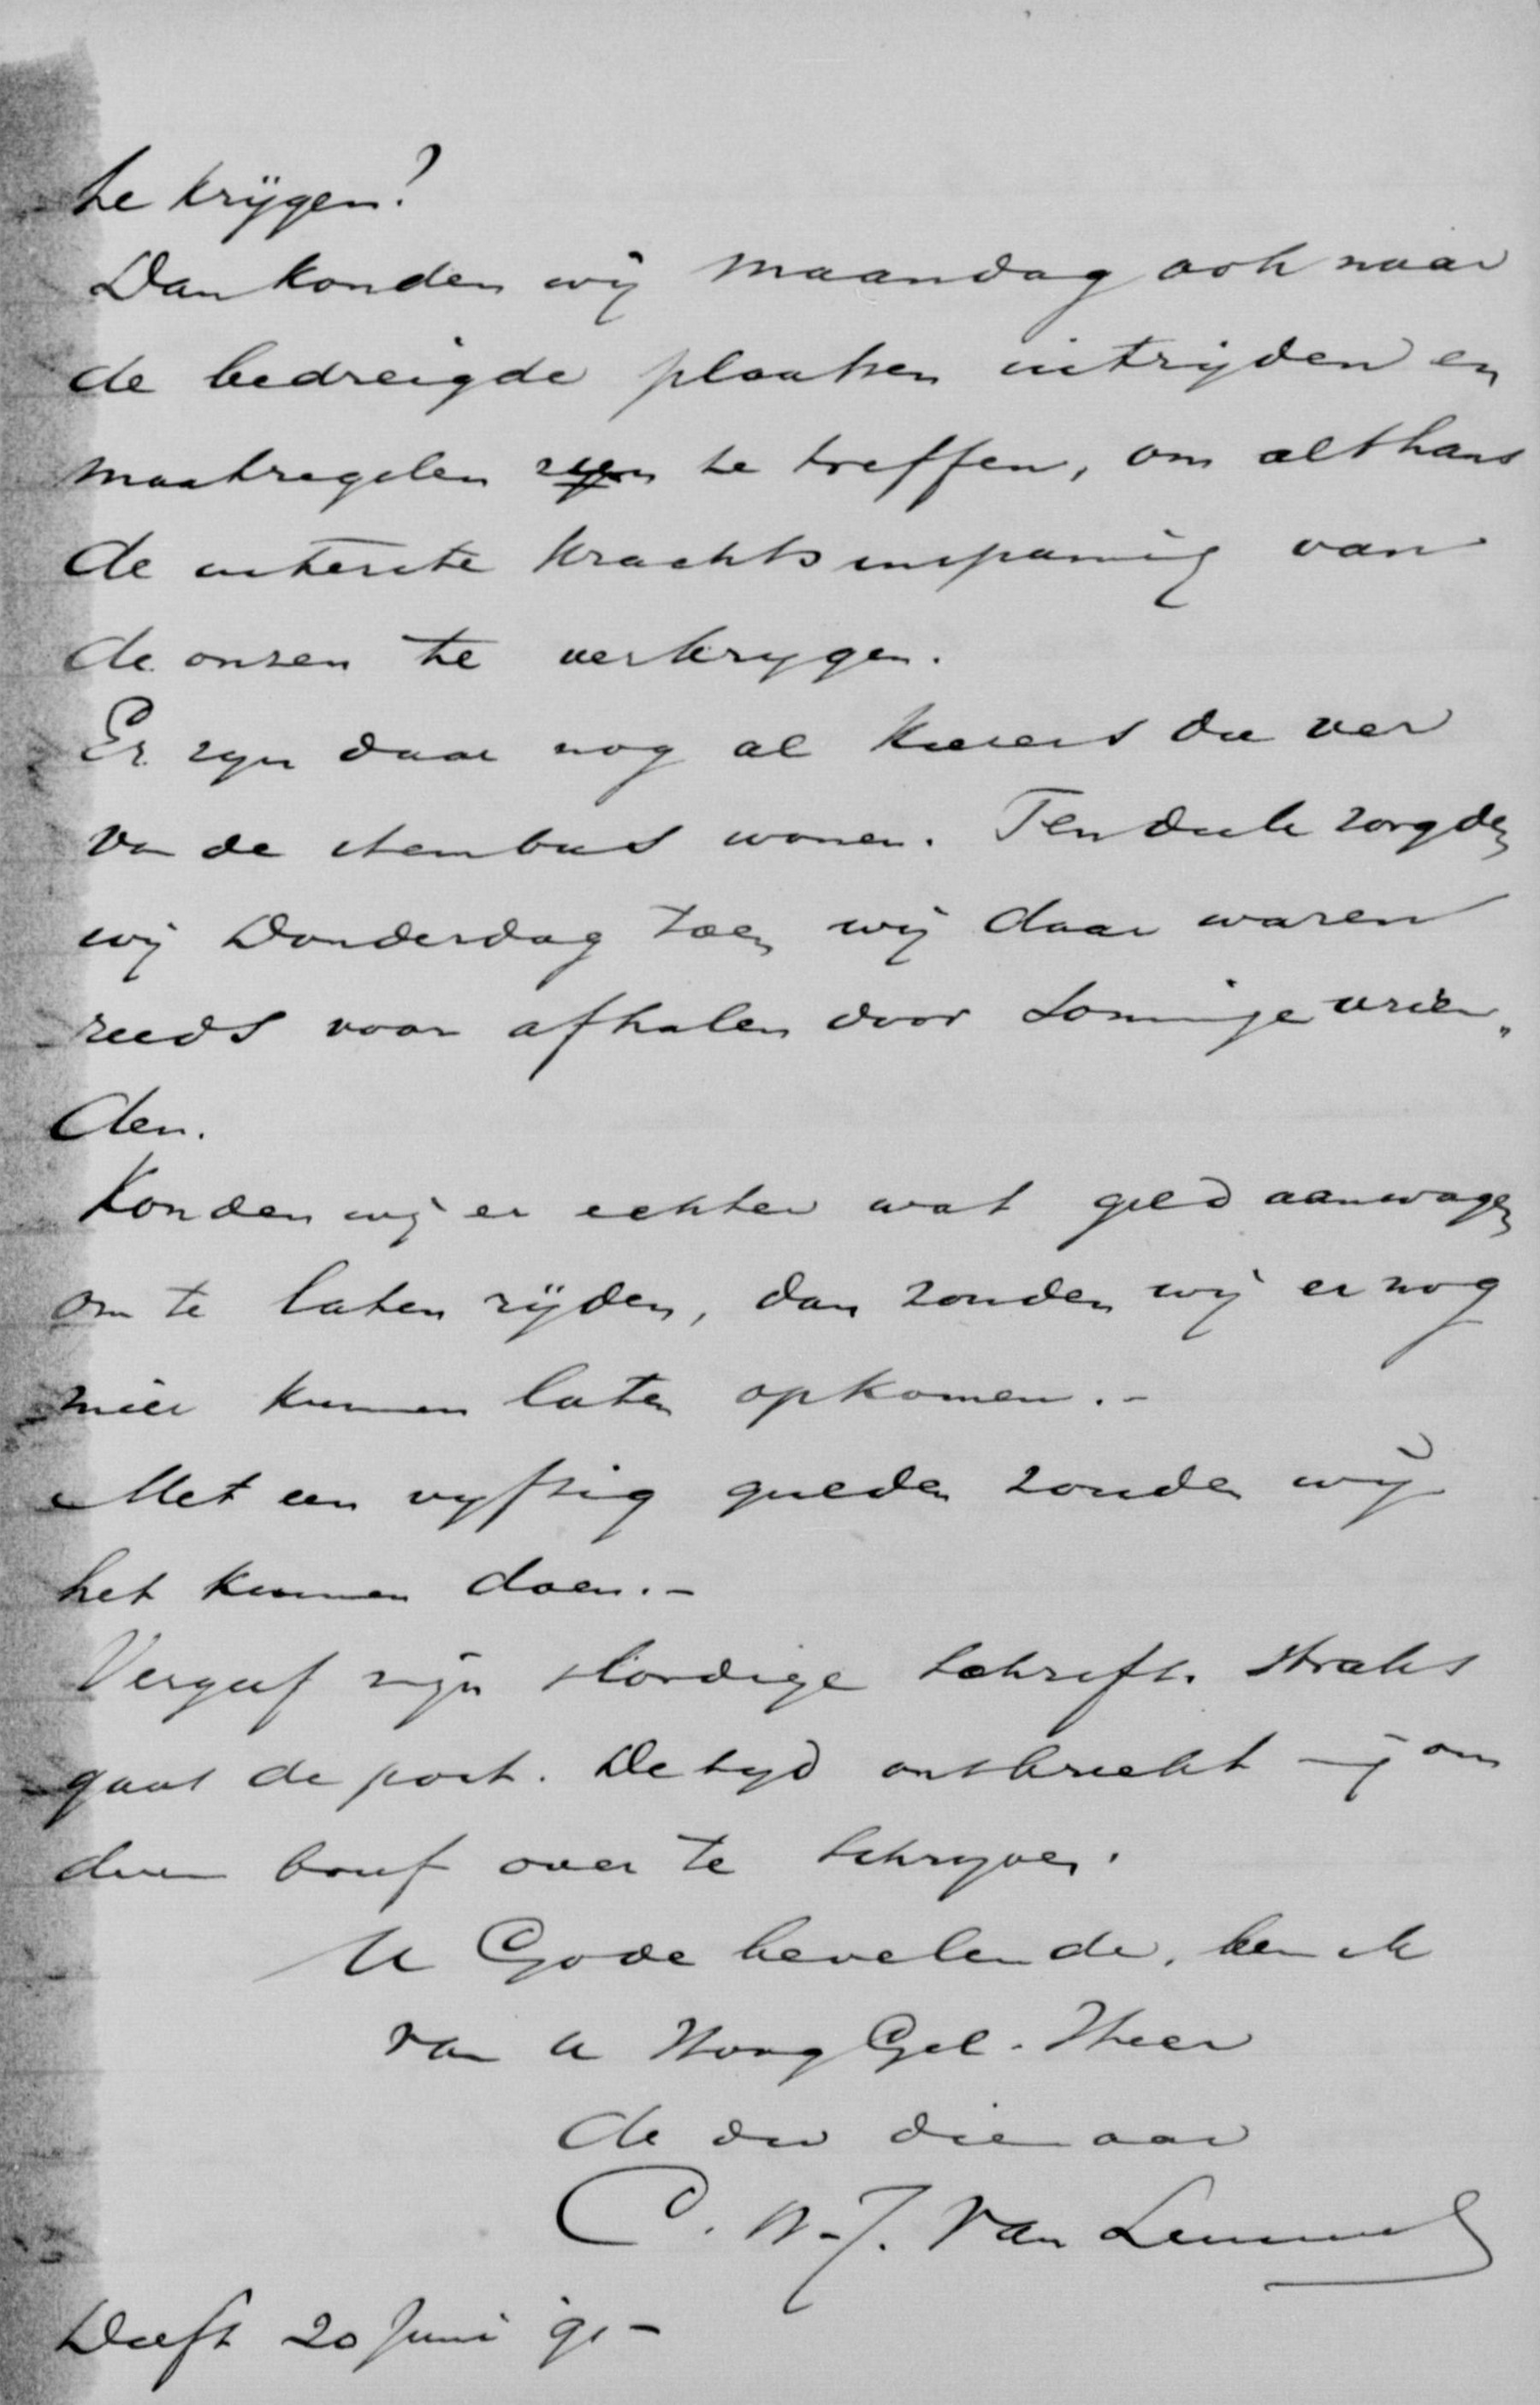 te krijgen?
Dan konden wij Maandag ook naar
de bedreigde plaatsen uitrijden en
maatregelen te treffen, om althans
de uiterste krachtsinspanning van
de onzen te verkrygen.
Er zyn daar nog al kiezers die ver
van de stembus wonen. Ten deele zorgden
wij Donderdag toen wij daar waren
reeds voor afhalen door sommige vrien„
den.
Konden wij er echter wat geld aanwagen
om te laten rijden, dan zouden wij er nog
meer kunnen laten opkomen. -
Met een vyftig gulden zouden wij
het kunnen doen. -
Vergeef mijn slordige schrift. Straks
gaat de post. De tyd ontbreekt mij om
dezen brief over te schryven.
U Gode bevelende, ben ik
van U HoogGel. Heer
de dw dienaar
C. N. J. van Lummel
Delft 20 Juni 91 -